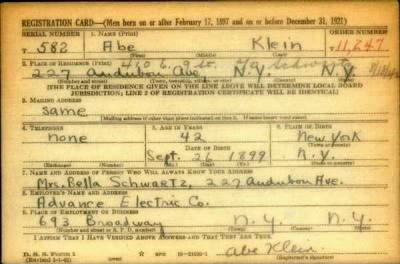 REGISTRATION CARD—(Men born on or after February 17, 1897 and on or before December 31, 1921)
SERIAL NUMBER 1. NAME (Print) ORDER NUMBER
T 582 Abe Klein T 11,247
(First) (Middle) (Last)
2. PLACE OF RESIDENCE (Print) 410 E. 9 St. c/o Schwartz
227 Audubon Ave. N.Y. N.Y.
(Number and street) (Town, township, village, or city) (County) (State)
[THE PLACE OF RESIDENCE GIVEN ON THE LINE ABOVE WILL DETERMINE LOCAL BOARD
JURISDICTION; LINE 2 OF REGISTRATION CERTIFICATE WILL BE IDENTICAL]
3. MAILING ADDRESS
Same
[Mailing address if other than place indicated on line 2. If same insert word same]
4. TELEPHONE 5. AGE IN YEARS 6. PLACE OF BIRTH
none 42 New York
DATE OF BIRTH (Town or county)
Sept. 26 1899 N.Y.
(Exchange) (Number) (Mo.) (Day) (Yr.) (State or country)
7. NAME AND ADDRESS OF PERSON WHO WILL ALWAYS KNOW YOUR ADDRESS
Mrs. Bella Schwartz, 227 Audubon Ave.
8. EMPLOYER'S NAME AND ADDRESS
Advance Electric Co.
9. PLACE OF EMPLOYMENT OR BUSINESS
693 Broadway N.Y. N.Y.
(Number and street or R. F. D. number) (Town) (County) (State)
I AFFIRM THAT I HAVE VERIFIED ABOVE ANSWERS AND THAT THEY ARE TRUE.
D. S. S. Form 1
(Revised 1-1-42) (over) Abe Klein
(Registrant's signature)